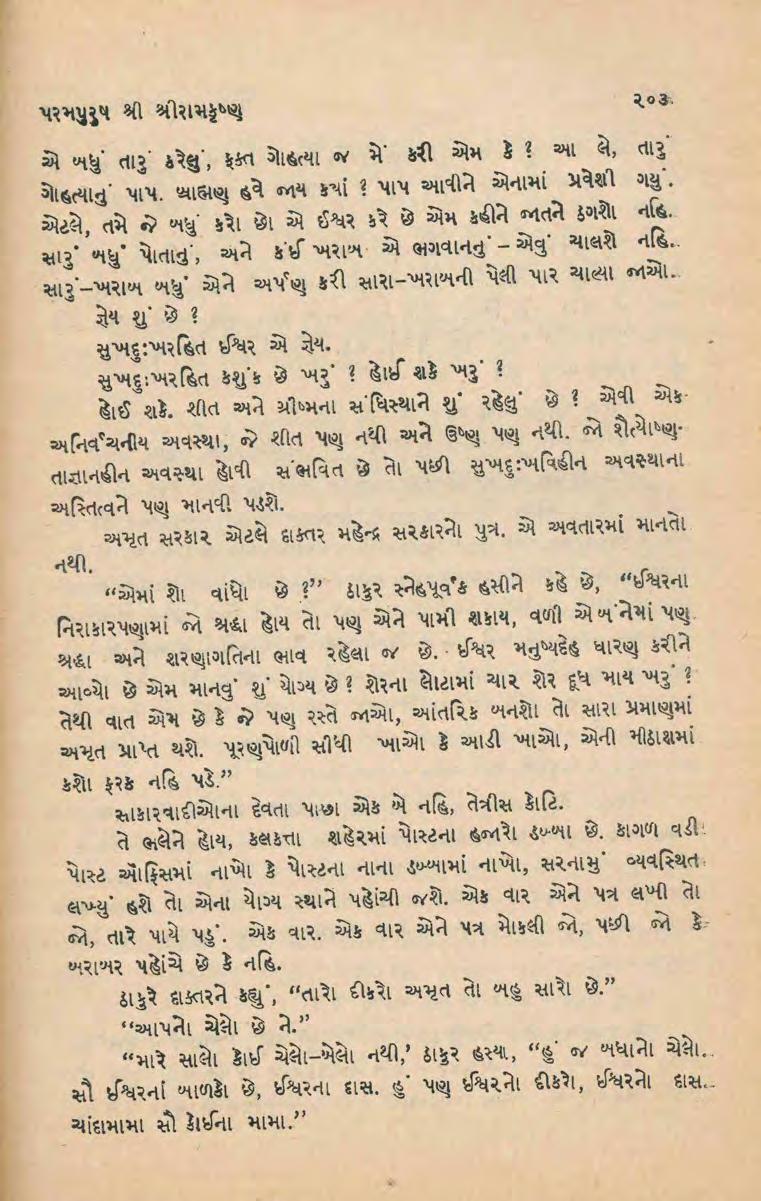 પરમપુરુષ શ્રી શ્રીરામકૃષ્ણ
૨૦૩
એ બધું તારું કરેલું, ફક્ત ગોહત્યા જ મેં કરી એમ કે ? આ લે, તારું
ગોહત્યાનું પાપ. બ્રાહ્મણ હવે જાય કયાં ? પાપ આવીને એનામાં પ્રવેશી ગયું.
એટલે, તમે જે બધું કરો છો એ ઈશ્વર કરે છે એમ કહીને જાતને ઠગશો નહિ.
સારું બધું પોતાનું, અને કંઈ ખરાબ એ ભગવાનનું – એવું ચાલશે નહિ.
સારું–ખરાબ બધું એને અર્પણ કરી સારા–ખરાબની પેલી પાર ચાલ્યા જાઓ.
જ્ઞેય શું છે ?
સુખદુઃખરહિત ઈશ્વર એ જ્ઞેય.
સુખદુઃખરહિત કશુંક છે ખરું ? હોઈ શકે ખરું ?
હોઈ શકે. શીત અને ગ્રીષ્મના સંધિસ્થાને શું રહેલું છે ? એવી એક
અનિર્વચનીય અવસ્થા, જે શીત પણ નથી અને ઉષ્ણ પણ નથી. જો શૈત્યોષ્ણ-
તાજ્ઞાનહીન અવસ્થા હોવી સંભવિત છે તો પછી સુખદુઃખવિહીન અવસ્થાના
અસ્તિત્વને પણ માનવી પડશે.
અમૃત સરકાર એટલે દાક્તર મહેન્દ્ર સરકારનો પુત્ર. એ અવતારમાં માનતો
નથી.
“એમાં શો વાંધો છે ?” ઠાકુર સ્નેહપૂર્વક હસીને કહે છે, “ઈશ્વરના
નિરાકારપણામાં જો શ્રદ્ધા હોય તો પણ એને પામી શકાય, વળી એ બંનેમાં પણ
શ્રદ્ધા અને શરણાગતિના ભાવ રહેલા જ છે. ઈશ્વર મનુષ્યદેહ ધારણ કરીને
આવ્યો છે એમ માનવું શું યોગ્ય છે ? શેરના લોટામાં ચાર શેર દૂધ માય ખરું ?
તેથી વાત એમ છે કે જે પણ રસ્તે જાઓ, આંતરિક બનશો તો સારા પ્રમાણમાં
અમૃત પ્રાપ્ત થશે. પૂરણપોળી સીધી ખાઓ કે આડી ખાઓ, એની મીઠાશમાં
કશો ફરક નહિ પડે.”
સાકારવાદીઓના દેવતા પાછા એક બે નહિ, તેત્રીસ કોટિ.
તે ભલેને હોય, કલકત્તા શહેરમાં પોસ્ટના હજારો ડબ્બા છે. કાગળ વડી
પોસ્ટ ઑફિસમાં નાખો કે પોસ્ટના નાના ડબ્બામાં નાખો, સરનામું વ્યવસ્થિત
લખ્યું હશે તો એના યોગ્ય સ્થાને પહોંચી જશે. એક વાર એને પત્ર લખી તો
જો, તારે પાયે પડું. એક વાર. એક વાર એને પત્ર મોકલી જો, પછી જો કે
બરાબર પહોંચે છે કે નહિ.
ઠાકુરે દાક્તરને કહ્યું, “તારો દીકરો અમૃત તો બહુ સારો છે.”
“આપનો ચેલો છે ને.”
“મારે સાલો કોઈ ચેલો–બેલો નથી,’ ઠાકુર હસ્યા, “હું જ બધાનો ચેલો.
સૌ ઈશ્વરનાં બાળકો છે, ઈશ્વરના દાસ. હું પણ ઈશ્વરનો દીકરો, ઈશ્વરનો દાસ.
ચાંદામામા સૌ કોઈના મામા.”